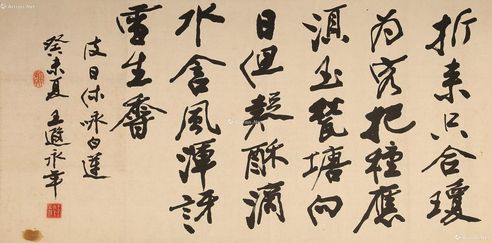 折来只合瓊
为客把種應
須玉甃塘向
日但疑酥滴
水含風渾訝
雪生香
皮日休咏白蓮
癸未夏王遐